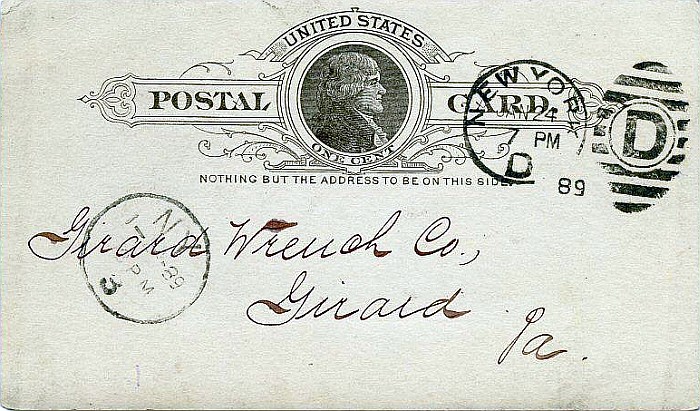 UNITED STATES
POSTAL CARD.
ONE CENT
NOTHING BUT THE ADDRESS TO BE ON THIS SIDE.
NEW YOR
JAN 24
7 PM
D
89
D
Girard Wrench Co.,
Girard
Pa.
N.Y.
89
PM
3